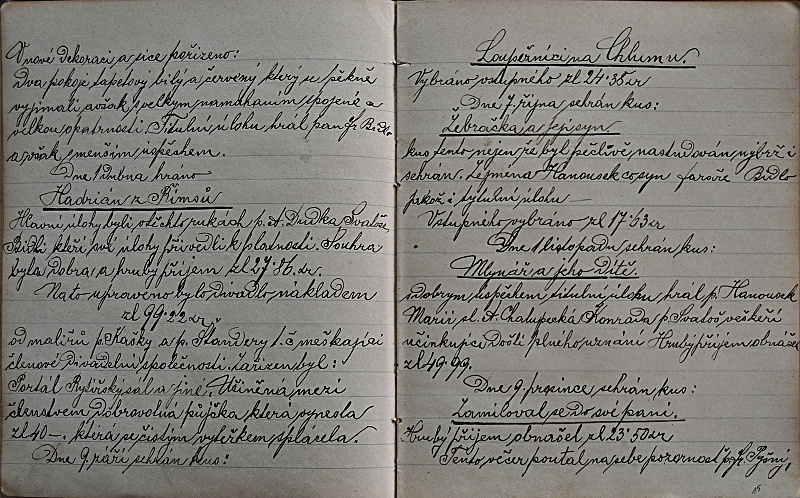 V nové dekoraci a sice pořízeno:
Dva pokoje tapetový bílý a červený který se pěkně
vyjímali avšak s velkym namáhaním spojené a
velkou opatrností. Titulní úlohu hrál pan Fr Bidlo
avšak s menším úspěchem.
Dne 1 dubna hráno
Hadrián z Římsů
Hlavní úlohy byli v těchto rukách p. A. Dudka Svatoše
Bidli kteří své úlohy přivedli k platnosti. Souhra
byla dobrá a hruby příjem zl 27·86 zr.
Na to upraveno bylo divadlo nákladem
zl 99·22 zr
od malířů p. Kašky a p. Standery t. č meškající
členové divadelní společnosti. Zařízen byl:
Portál Rytířský sál a jiné. Učiněná mezi
členstvem dobrovolná půjčka která vynesla
zl 40 –. která se čistým výtěžkem splácela.
Dne 9. září sehrán kus:
Loupežníci na Chlumu.
Vybráno vstupného zl 24·38 zr
Dne 7. října sehrán kus:
Žebračka a její syn.
kus tento nejen že byl pečlivě nastudován nýbrž i
sehrán. Zejména Hanousek co syn farář Bidlo
jakož i tytulní úlohu —
Vstupného vybráno zl 17·63 zr
Dne 1 listopadu sehrán kus:
Mlynář a jeho dítě.
s dobrym úspěchem titulní úlohu hrál p. Hanousek
Marii sl. A Chalupecká Konráda p. Svatoš veškeří
účinkující došli plného uznání Hruby příjem obnášel
zl 49·99.
Dne 9. prosince sehrán kus:
Zamiloval se do své paní.
Hruby příjem obnášel zl 23·50 zr
Tento večer poutal na sebe pozornost p. Fr.